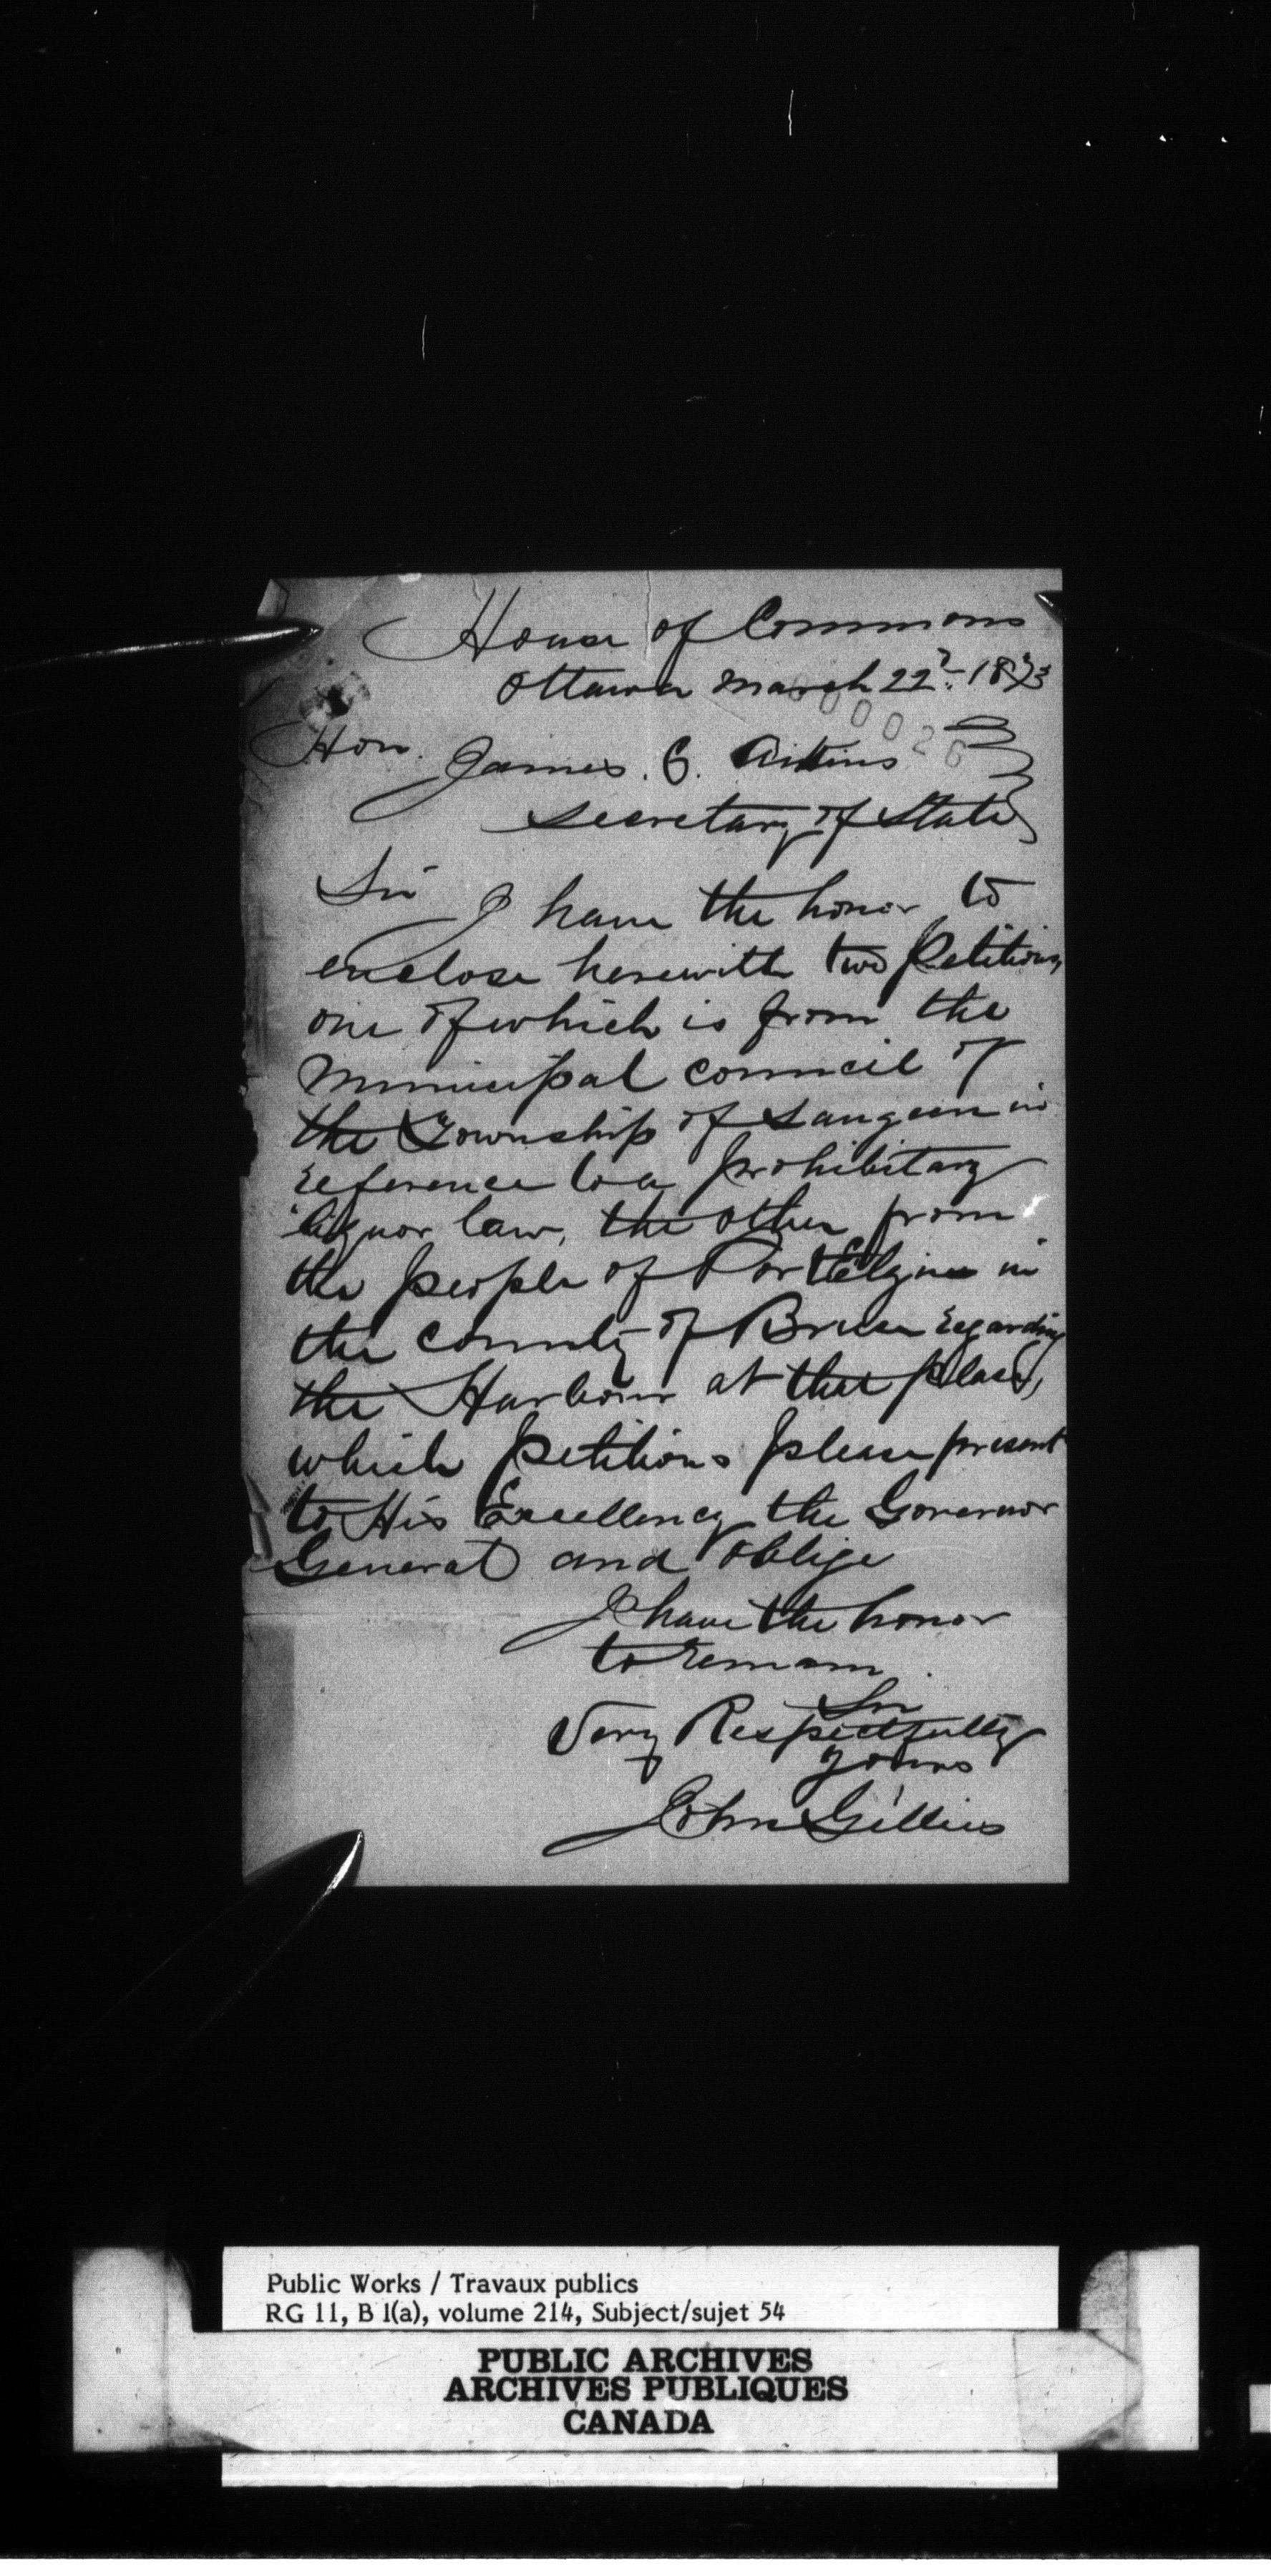 House of Commons
Ottawa March 22d. 1873
000026
Hon.
James. C. Aikins
Secretary of State
Sir I have the honor to
enclose herewith two Petitions
one of which is from the
Municipal council of
the Township of Saugeen in
reference to a prohibitary
liquor law, the other from
the people of Port Elgin in
the county of Bruce regarding
the Harbour at that place,
which petitions please present
to His Excellency the Governor
General and oblige
I have the honor
to remain
Sir
Very Respectfully
yours
John Gillies
Public Works / Travaux publics
RG 11, B 1(a), volume 214, Subject/sujet 54
PUBLIC ARCHIVES
ARCHIVES PUBLIQUES
CANADA